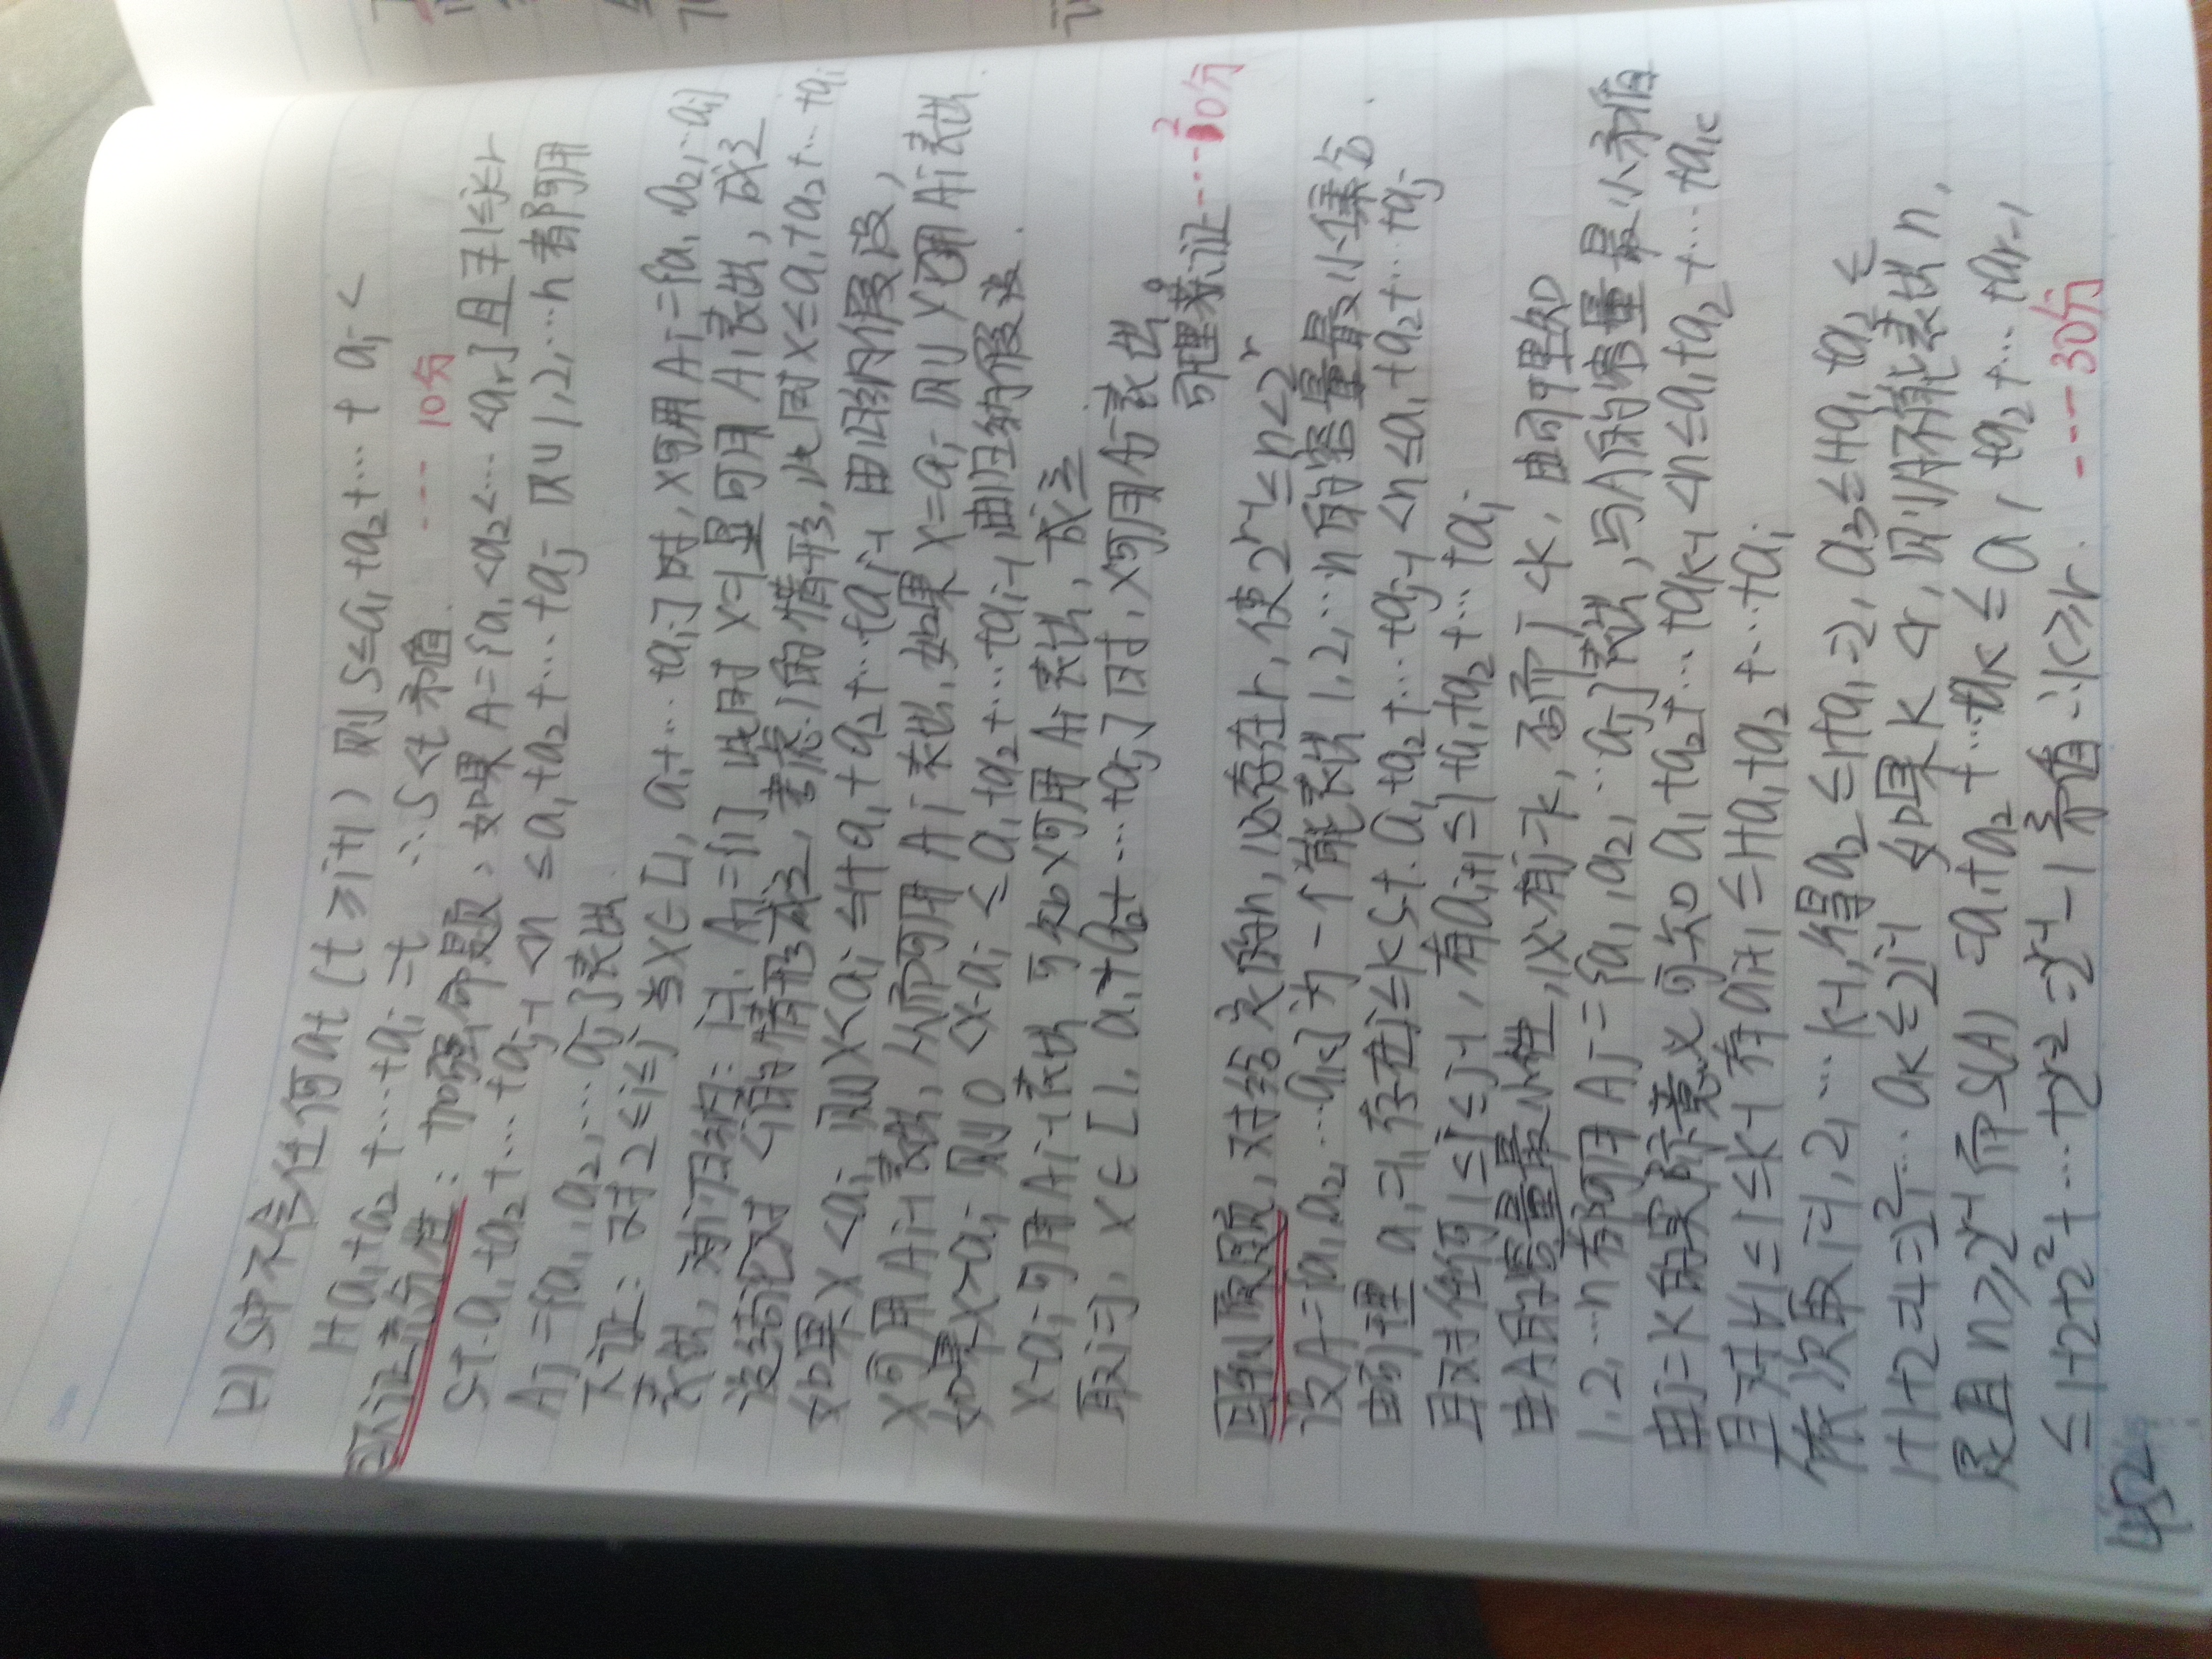 因S中不含任何at(t≥i+1) 则S≤a₁+a₂+…+ai<
1+a₁+a₂+…+ai=t ∴S<t矛盾. ---10分
再证充分性: 加强命题, 如果A={a₁<a₂<…<ar}且∃1≤j≤r
s.t. a₁+a₂+…+aj-1<n≤a₁+a₂+…+aj 则1,2,…n都可用
Aj={a₁,a₂,…aj}表出.
下证: 对2≤i≤j 当x∈[1, a₁+…+ai]时, x可用Ai={a₁,a₂,…ai}
表出, 对i归纳: i=1, A₁={1} 此时x=1显可用A₁表出, 成立
设结论对<i的情形成立, 考虑i的情形, 此时x≤a₁+a₂+…+ai
如果x<ai 则x<ai≤1+a₁+a₂+…+ai-1 由归纳假设,
x可用Ai-1表出, 从而可用Ai表出, 如果x=ai 则x可用Ai表出
如果x>ai 则0<x-ai≤a₁+a₂+…+ai-1 由归纳假设.
x-ai可用Ai-1表出 可知x可用Ai表出, 成立
取i=j, x∈[1, a₁+a₂+…+aj]时, x可用Aj表出。
引理来证---20分
回到原题, 对给定的n, 必存在r, 使2^(r-1)≤n<2^r
设A={a₁,a₂,…ak}为一个能表出1,2,…n的容量最小集合.
由引理 a₁=1, 存在j≤k s.t. a₁+a₂+…+aj-1<n≤a₁+a₂+…+aj
且对任何1≤i≤j-1, 有ai+1≤1+a₁+a₂+…+ai
由A的容量最小性, 必有j=k, 否则j<k, 由引理知
1,2,…n都可用Aj={a₁,a₂,…aj}表出, 与A的容量最小矛盾
由j=k的实际意义可知a₁+a₂+…+ak-1<n≤a₁+a₂+…+ak
且对∀1≤i≤k-1有ai+1≤1+a₁+a₂+…+ai
依次取i=1,2,…k-1, 得a₂≤1+a₁=2, a₃≤1+a₁+a₂≤
1+1+2=4=2²,… ak≤2^(k-1) 如果k<r, 则A不能表出n,
反且n≥2^(r-1) 而S(A)=a₁+a₂+…+ak≤a₁+a₂+…+ar-1
≤1+2+2²+…+2^(r-2)=2^(r-1)-1矛盾∴k≥r. ---30分